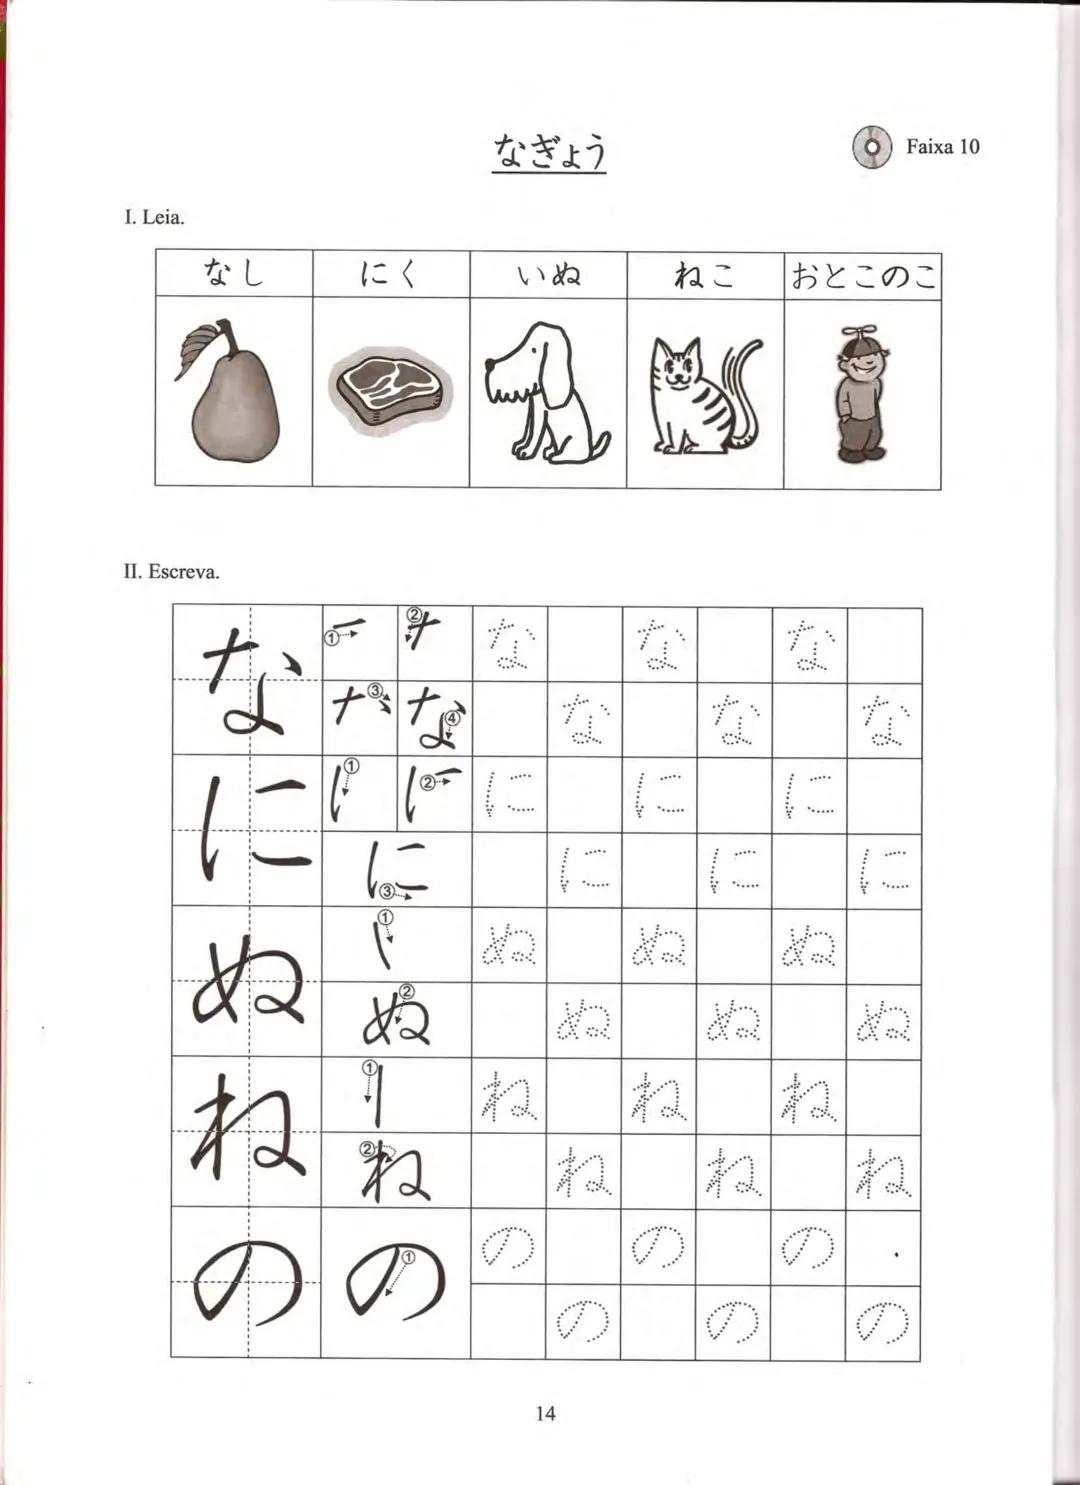 なぎょう
Faixa 10
I. Leia.
なし にく いぬ ねこ おとこのこ
II. Escreva.
な ① ② な な な
③ な ④ な な な
に ① ② に に に
に ③ に に に
ぬ ① ぬ ぬ ぬ
ぬ ② ぬ ぬ ぬ
ね ① ね ね ね
ね ② ね ね ね
の の ① の の の
の の の
14